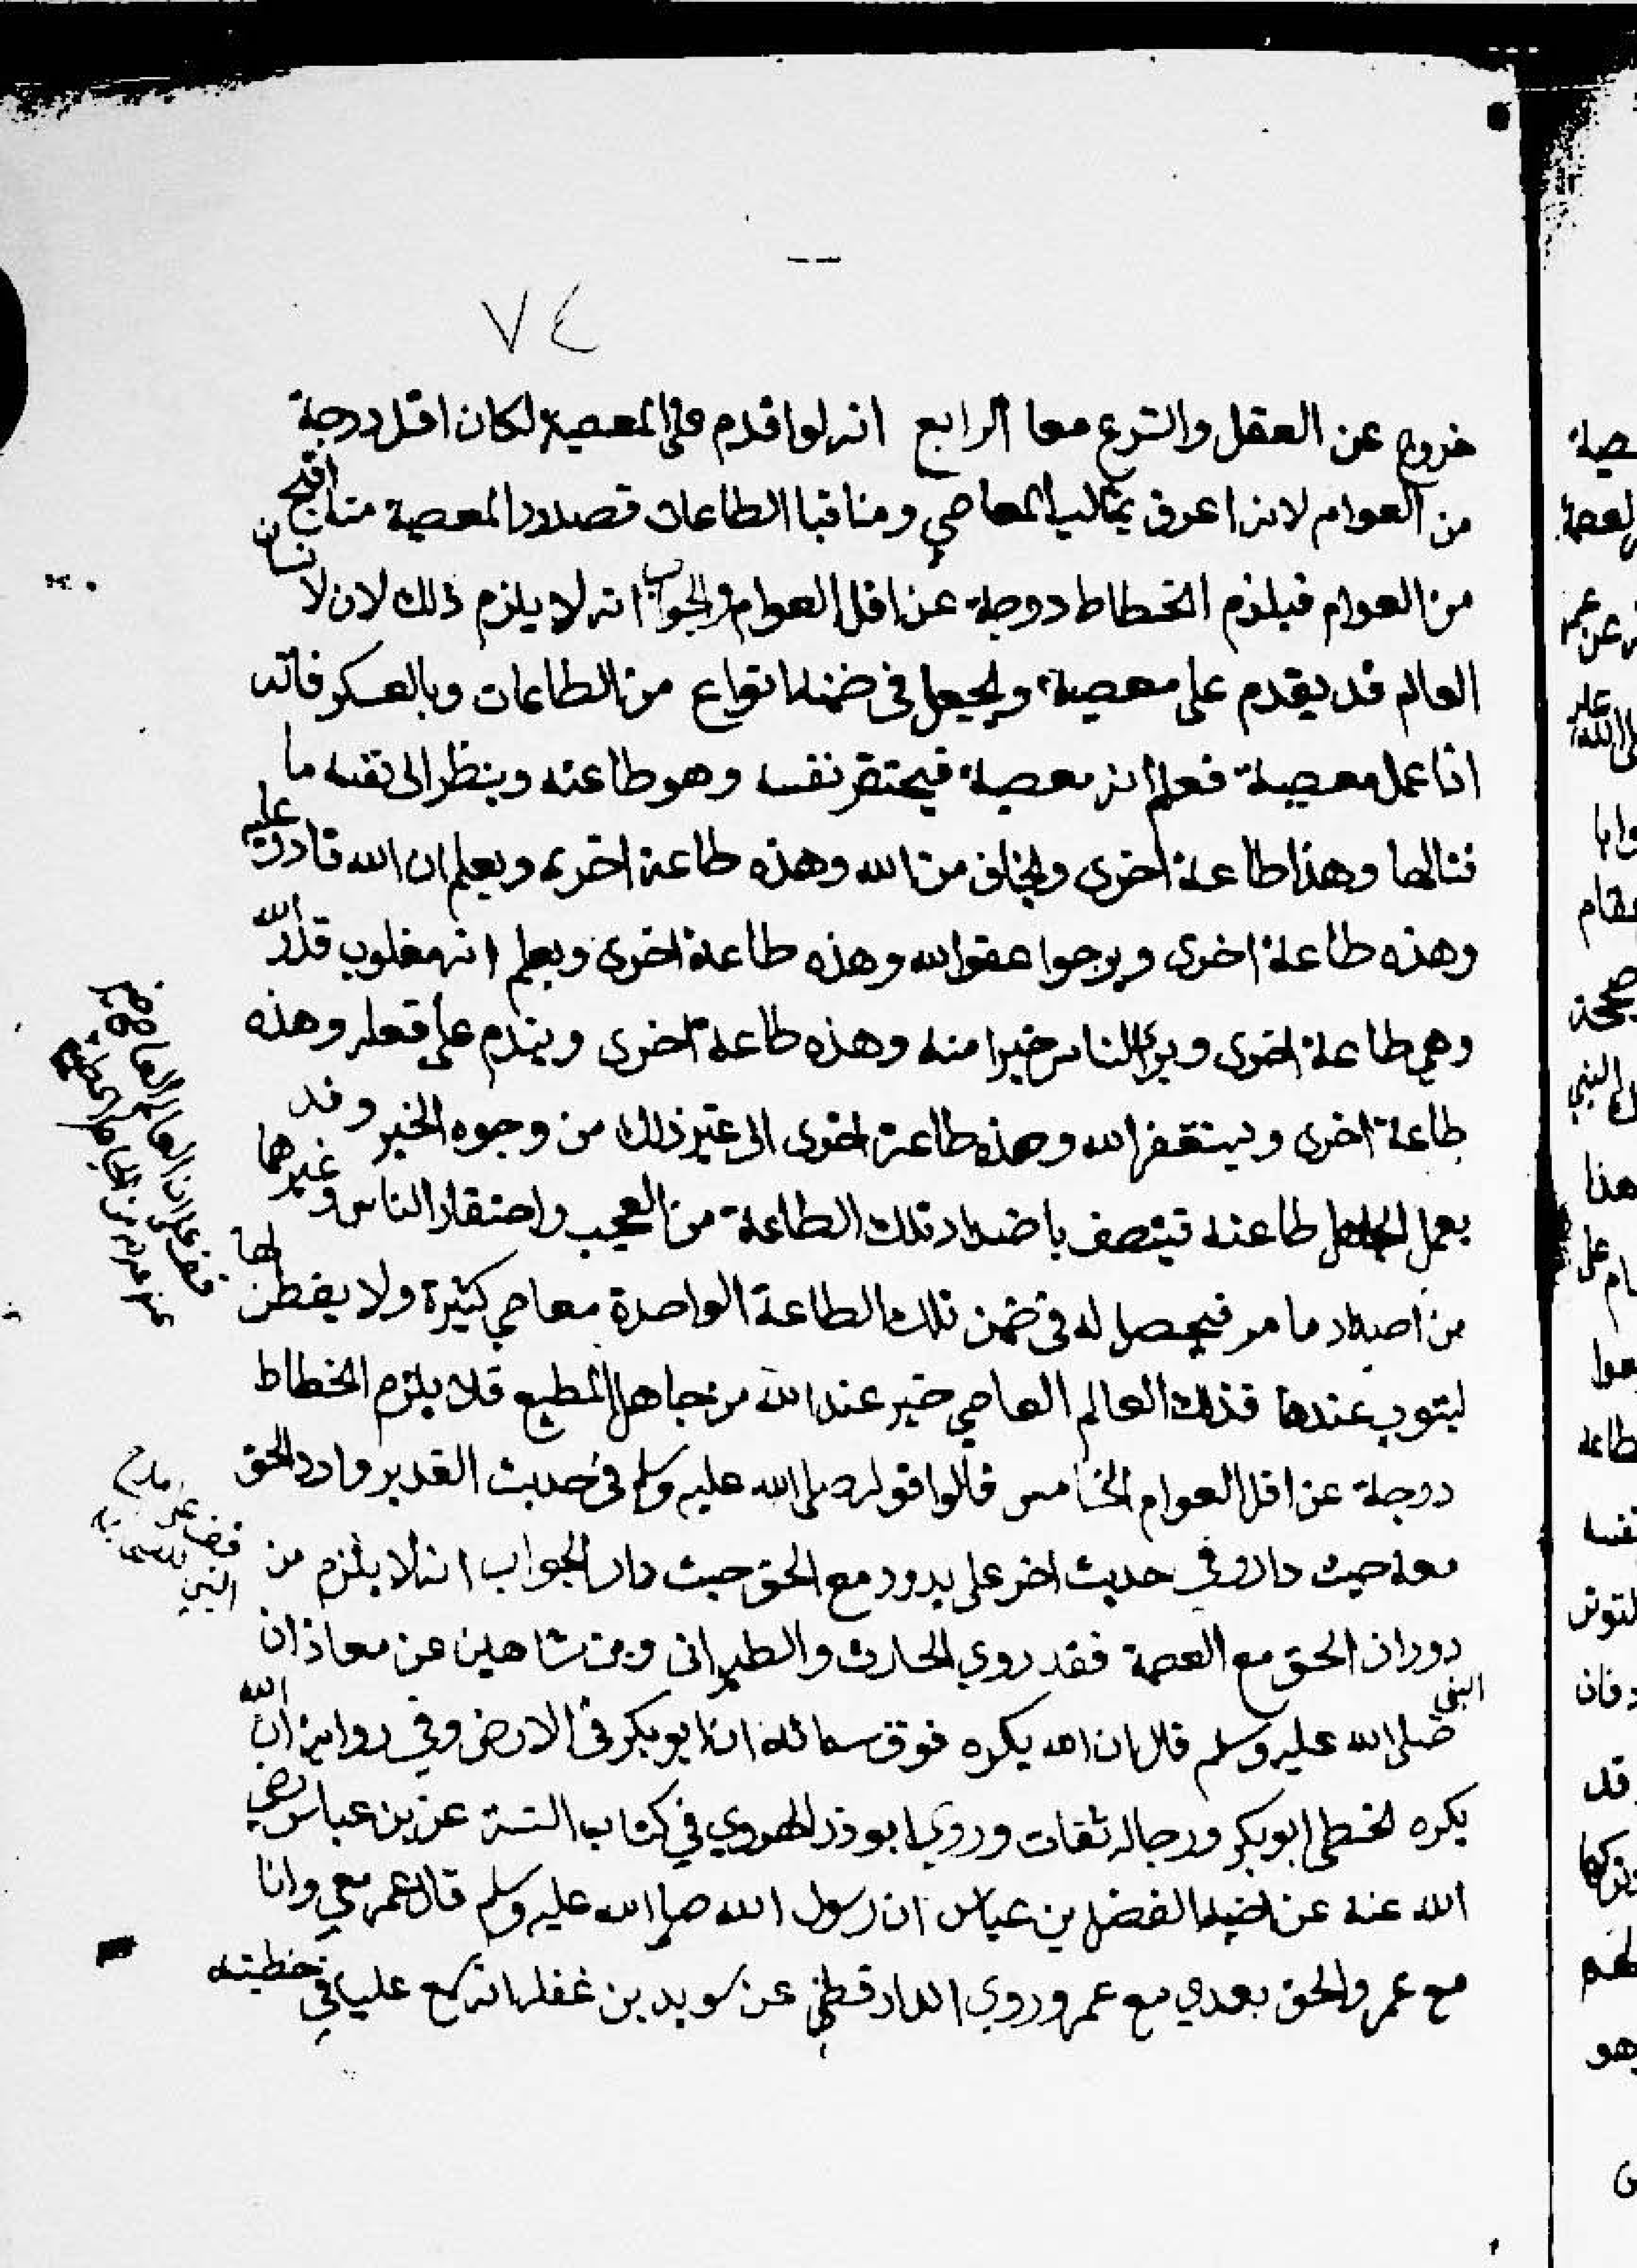 ٧٤
خروج عن العقل والشرع معا الرابع انه لو اقدم على المعصية لكان اقل درجة
من العوام لانه اعرف بمثالب المعاصي ومناقب الطاعات فصدور المعصية منه اقبح
من العوام فيلزم انحطاط درجة عن اقل العوام والجواب انه لا يلزم ذلك لان لانسان
العالم قد يقدم على معصية ويجعل في ضمنها انواع من الطاعات وبالعكس فانه
اذا عمل معصية فعلم انه معصية فيحتقر نفسه وهو طاعته وينظر الى نفسه ما
نالها وهذا طاعة اخرى ويخاف من الله وهذه طاعة اخرى ويعلم ان الله قادر عليه
وهذه طاعة اخرى ويرجوا عفو الله وهذه طاعة اخرى ويعلم انه مغلوب قدر الله
وهي طاعة اخرى ويرى الناس خيرا منه وهذه طاعة اخرى ويندم على فعله وهذه
طاعة اخرى ويستغفر الله وهذه طاعة اخرى الى غير ذلك من وجوه الخير وقد
يعمل الجاهل طاعته فيتصف باضداد تلك الطاعة من العجب واحتقار الناس وغيرهما
من اضداد ما مر فيحصل له في ضمن تلك الطاعة الواحدة معاصي كثيرة ولا يفطن لها
ليتوب عندها فذلك العالم العاصي خير عند الله من جاهل المطيع فلا يلزم انحطاط
درجة عن اقل العوام الخامس قالوا قوله صلى الله عليه وسلم في حديث الغدير وادر الحق
معه حيث دار وفي حديث اخر علي يدور مع الحق حيث دار الجواب انه لا يلزم من
دوران الحق مع العصمة فقد روي الحارث والطبراني وبن شاهين عن معاذ ان
النبي صلى الله عليه وسلم قال ان الله يكره فوق سمائه ان ابو بكر في الارض وفي رواية ان الله
يكره تخطى ابو بكر ورجاله ثقات وروي ابو ذر الهروي في كتاب السنة عن بن عباس رضي
الله عنه عن اخيه الفضل بن عباس ان رسول الله صلى الله عليه وسلم قال عمر معي وانا
مع عمر والحق بعدي مع عمر وروي الدارقطني عن سويد بن غفلة انه سمع عليا في خطبته
قف على ان العالم العاصي خير
عند الله من الجاهل المطيع
قف على